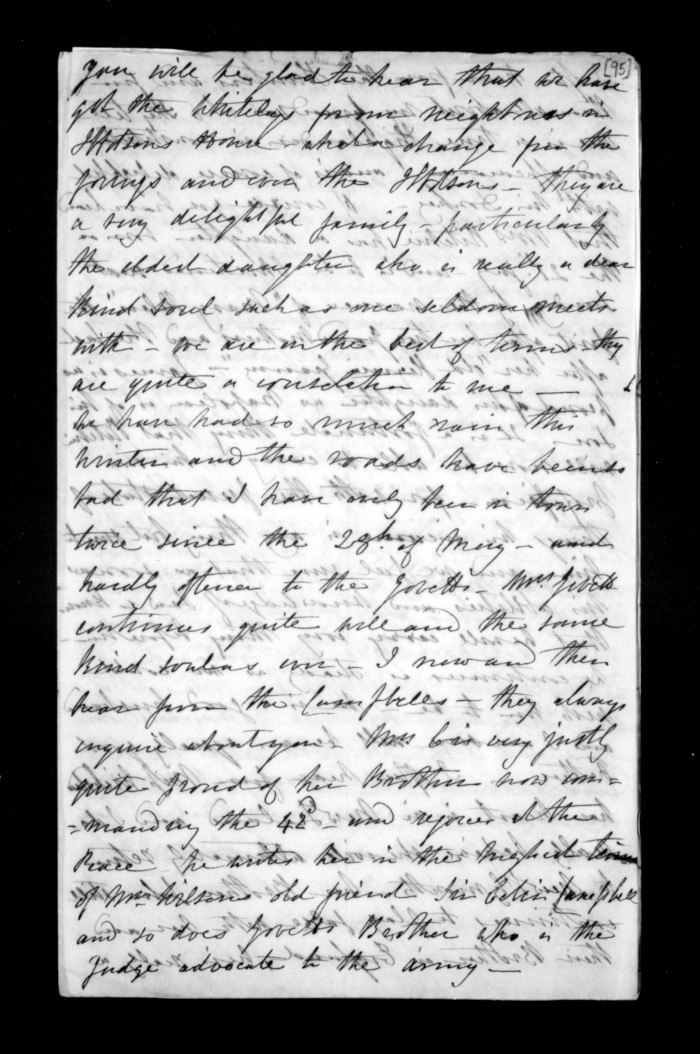 [95]
You will be glad to hear that we have
got the Whitelys from neighbours in
Ibbotsons House - what a change for the
and even the Ibbotsons - they are
a very delightful family - particularly
the eldest daughter who is really a dear
kind soul such as one seldom meets
with - we are on the best of terms they
are quite a consolation to me -
we have had so much rain this
winter and the roads have been so
bad that I have only been in town
twice since the 29th of May - and
hardly oftener to the Govetts - Mrs Govett
continues quite well and the same
kind soul as ever - I now and then
hear from the Campbells - they always
enquire about you - Mrs C is very justly
quite proud of her Brother now com=
=manding the 42d - and rejoices at the
Peace he writes her in the highest terms
of Mrs Wilsons old friend Sir Colin Campbell
and so does Govetts Brother who is the
Judge advocate to the army -